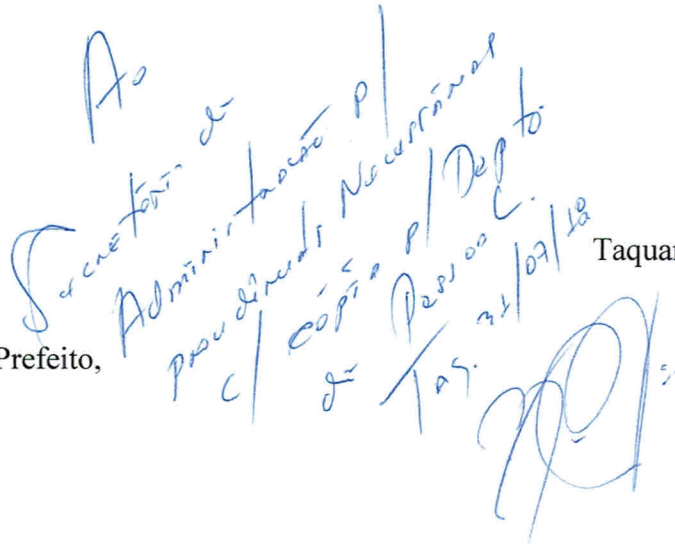 Ao
Secretário de
Administração p/
providências Necessárias
c/ cópia p/ Depto
de Pessoal.
Taq. 31/07/18
Taquar
Prefeito,